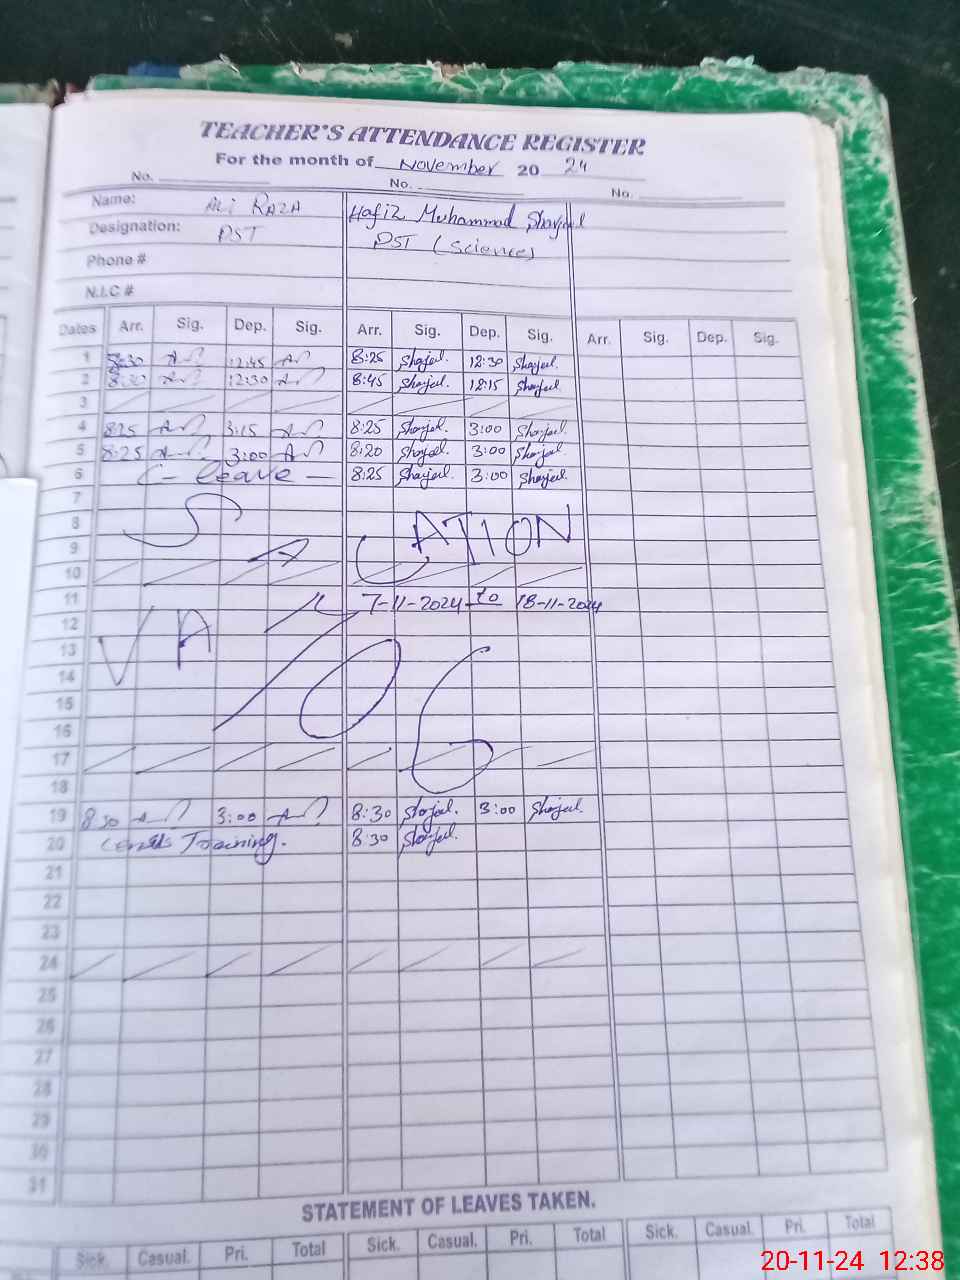 TEACHER'S ATTENDANCE REGISTER
For the month of November 20 24
No. No. No.
Name: Ali RAZA Hafiz Muhammad Sharjeel
Designation: PST PST (Science)
Phone #
N.I.C #
Dates Arr. Sig. Dep. Sig. Arr. Sig. Dep. Sig. Arr. Sig. Dep. Sig.
1 8:30 12:45 8:25 Sharjeel. 12:30 Sharjeel.
2 8:30 12:30 8:45 Sharjeel. 12:15 Sharjeel
3
4 825 3:15 8:25 Sharjeel. 3:00 Sharjeel.
5 8:25 3:00 8:20 Sharjeel. 3:00 Sharjeel.
6 C- leave - 8:25 Sharjeel. 3:00 Sharjeel.
7
8 CATION
9
10
11 7-11-2024 to 18-11-2024
12
13 VA
14
15
16
17
18
19 830 3:00 8:30 Sharjeel. 3:00 Sharjeel.
20 Training. 8:30 Sharjeel.
21
22
23
24
25
26
27
28
29
30
31
STATEMENT OF LEAVES TAKEN.
Sick. Casual. Pri. Total Sick. Casual. Pri. Total Sick. Casual. Pri. Total
20-11-24 12:38